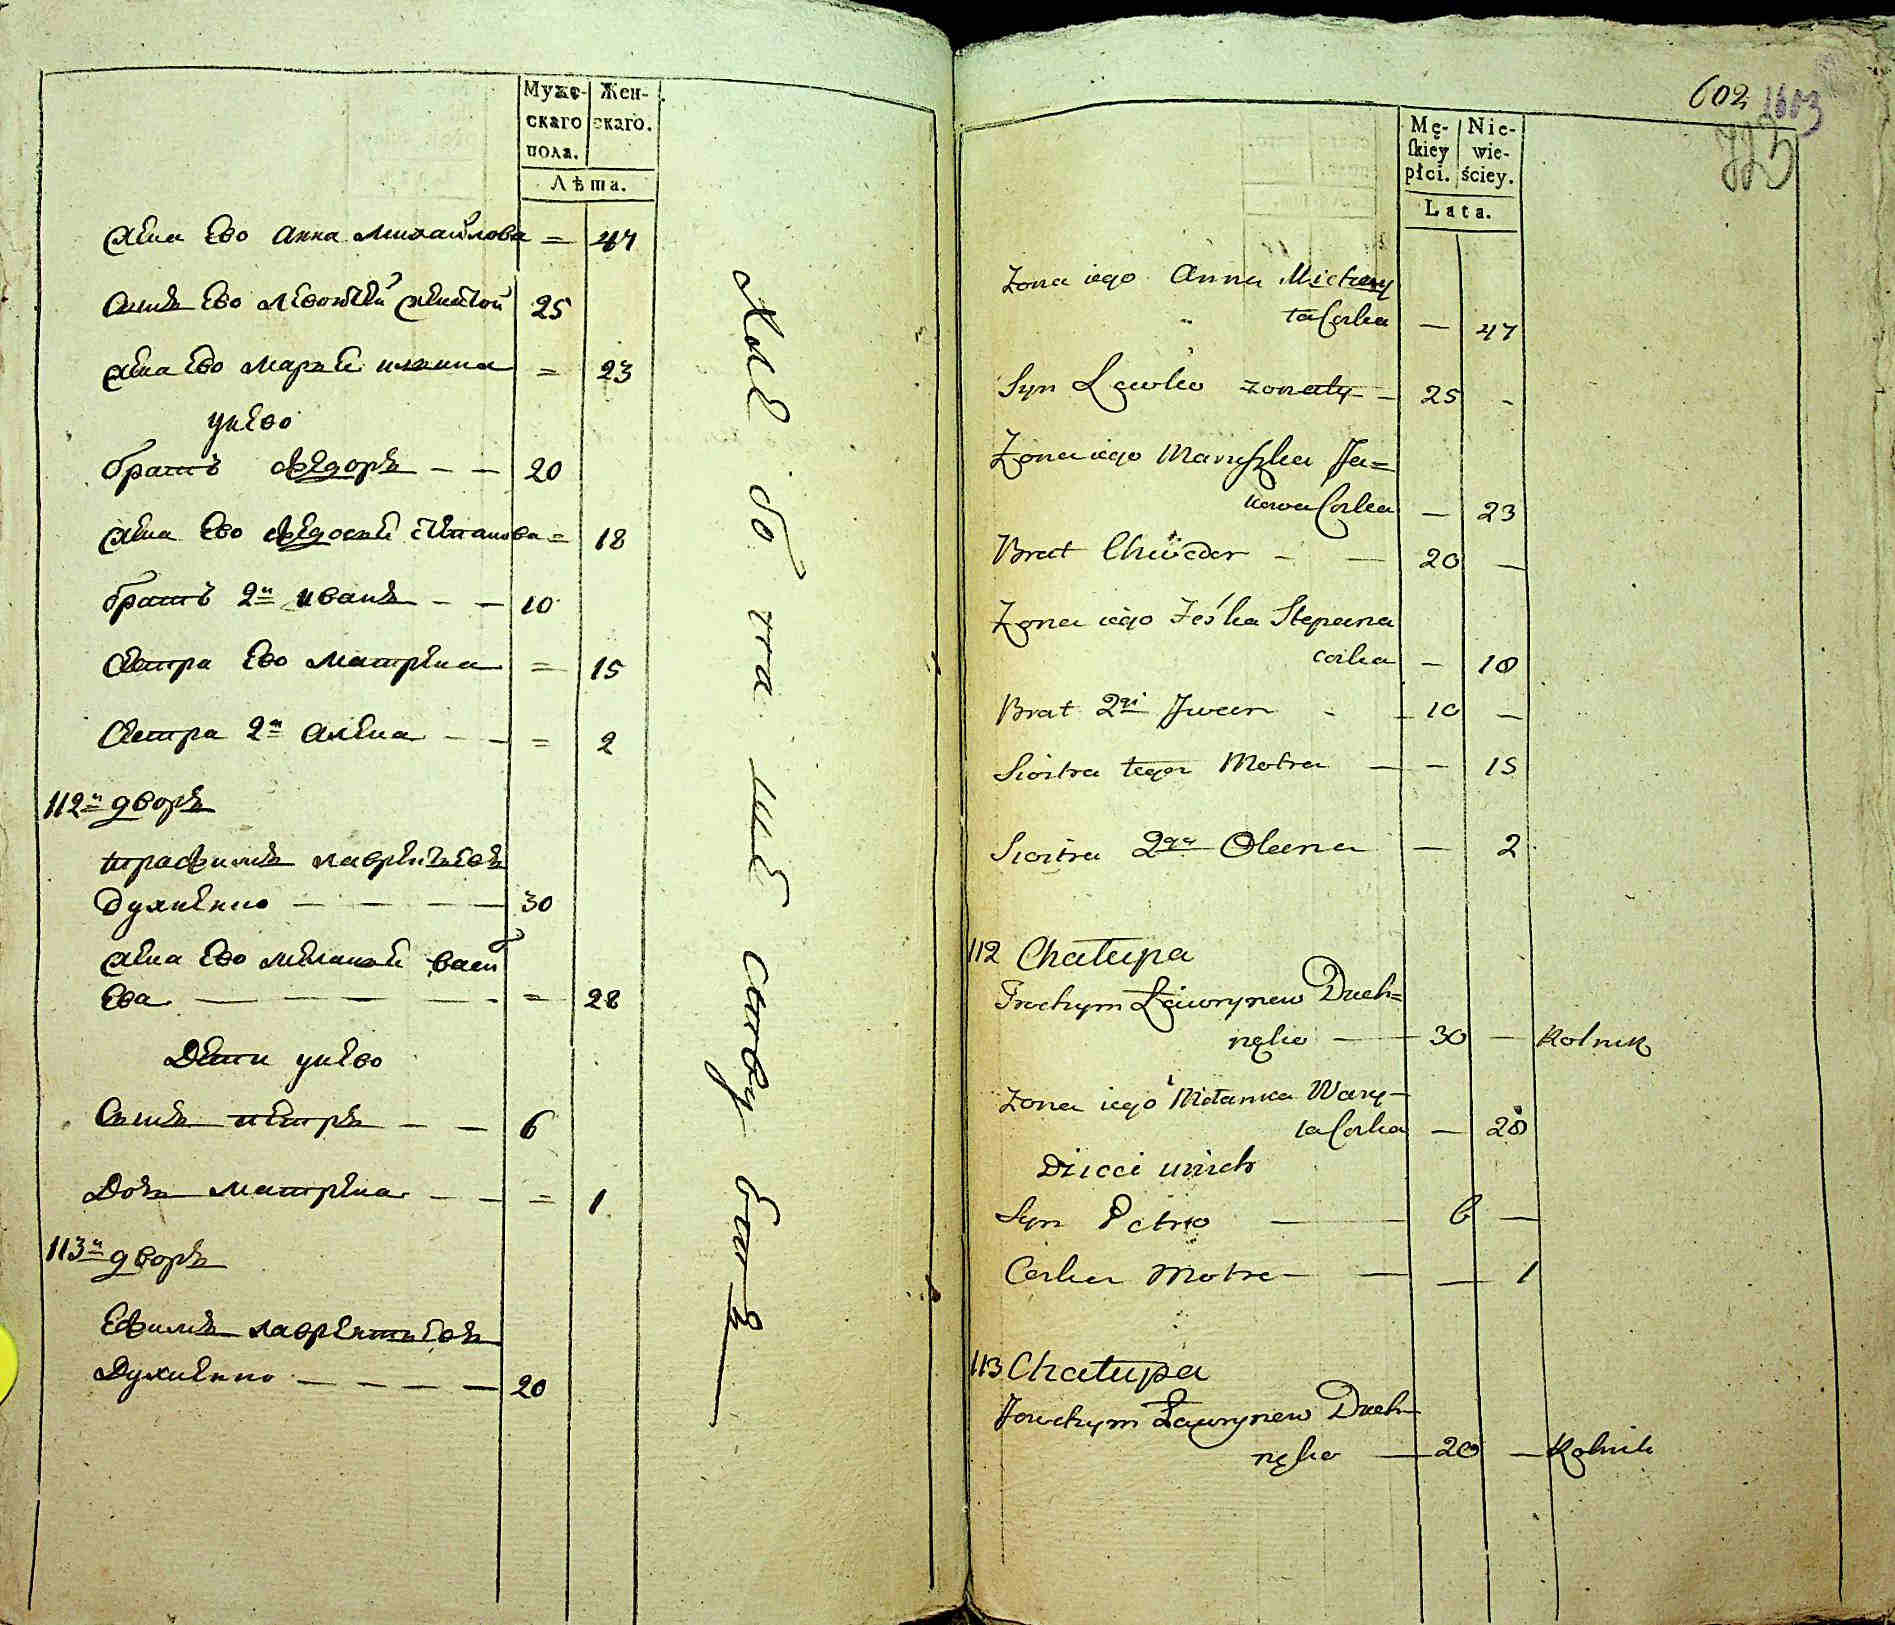 Муже- Жен-
скаго скаго.
пола.
Лѣта.
жена Ево Анна Михайлова = 47
сынъ Ево Левонтей женатой 25
жена Ево Марья = 23
унево
братъ Федоръ — — 20
жена Ево Федосья Степанова = 18
братъ 2й иванъ — — 10
сестра Ево матрена = 15
Сестра 2я Алена — — = 2
112й дворъ
трафимъ лаврентьевъ
Духненко — — — — 30
жена Ево меланья васи
Ева — — — — = 28
Дети унево
Сынъ петръ — — 6
Дочь матрена — — = 1
113й дворъ
Ефимъ лаврентьевъ
Духненко — — — — 20
602 1603
Mę- Nie-
skiey wie-
płci. ściey.
Lata.
Zona iego Anna Michay
ła Corka — 47
Syn Lewko zonaty — 25 -
Zona iego Maruszka Ja=
kowa Corka — 23
Brat Chwedor - — 20 —
Zona iego Feśka Stepana
corka — 18
Brat 2gi Jwan - - 10 —
Siostra tegoz Motra — — 15
Siostra 2ga Olena — 2
112 Chałupa
Trochym Ławrynew Duch=
nęko — 30 — Rolnik
Zona iego Miłanka Wasy-
la Corka — 28
Dzieci unich
Syn Petro — 6 —
Corka Motra — — — 1
113 Chałupa
Jowchym Ławrynew Duch-
nęko — 20 — Rolnik